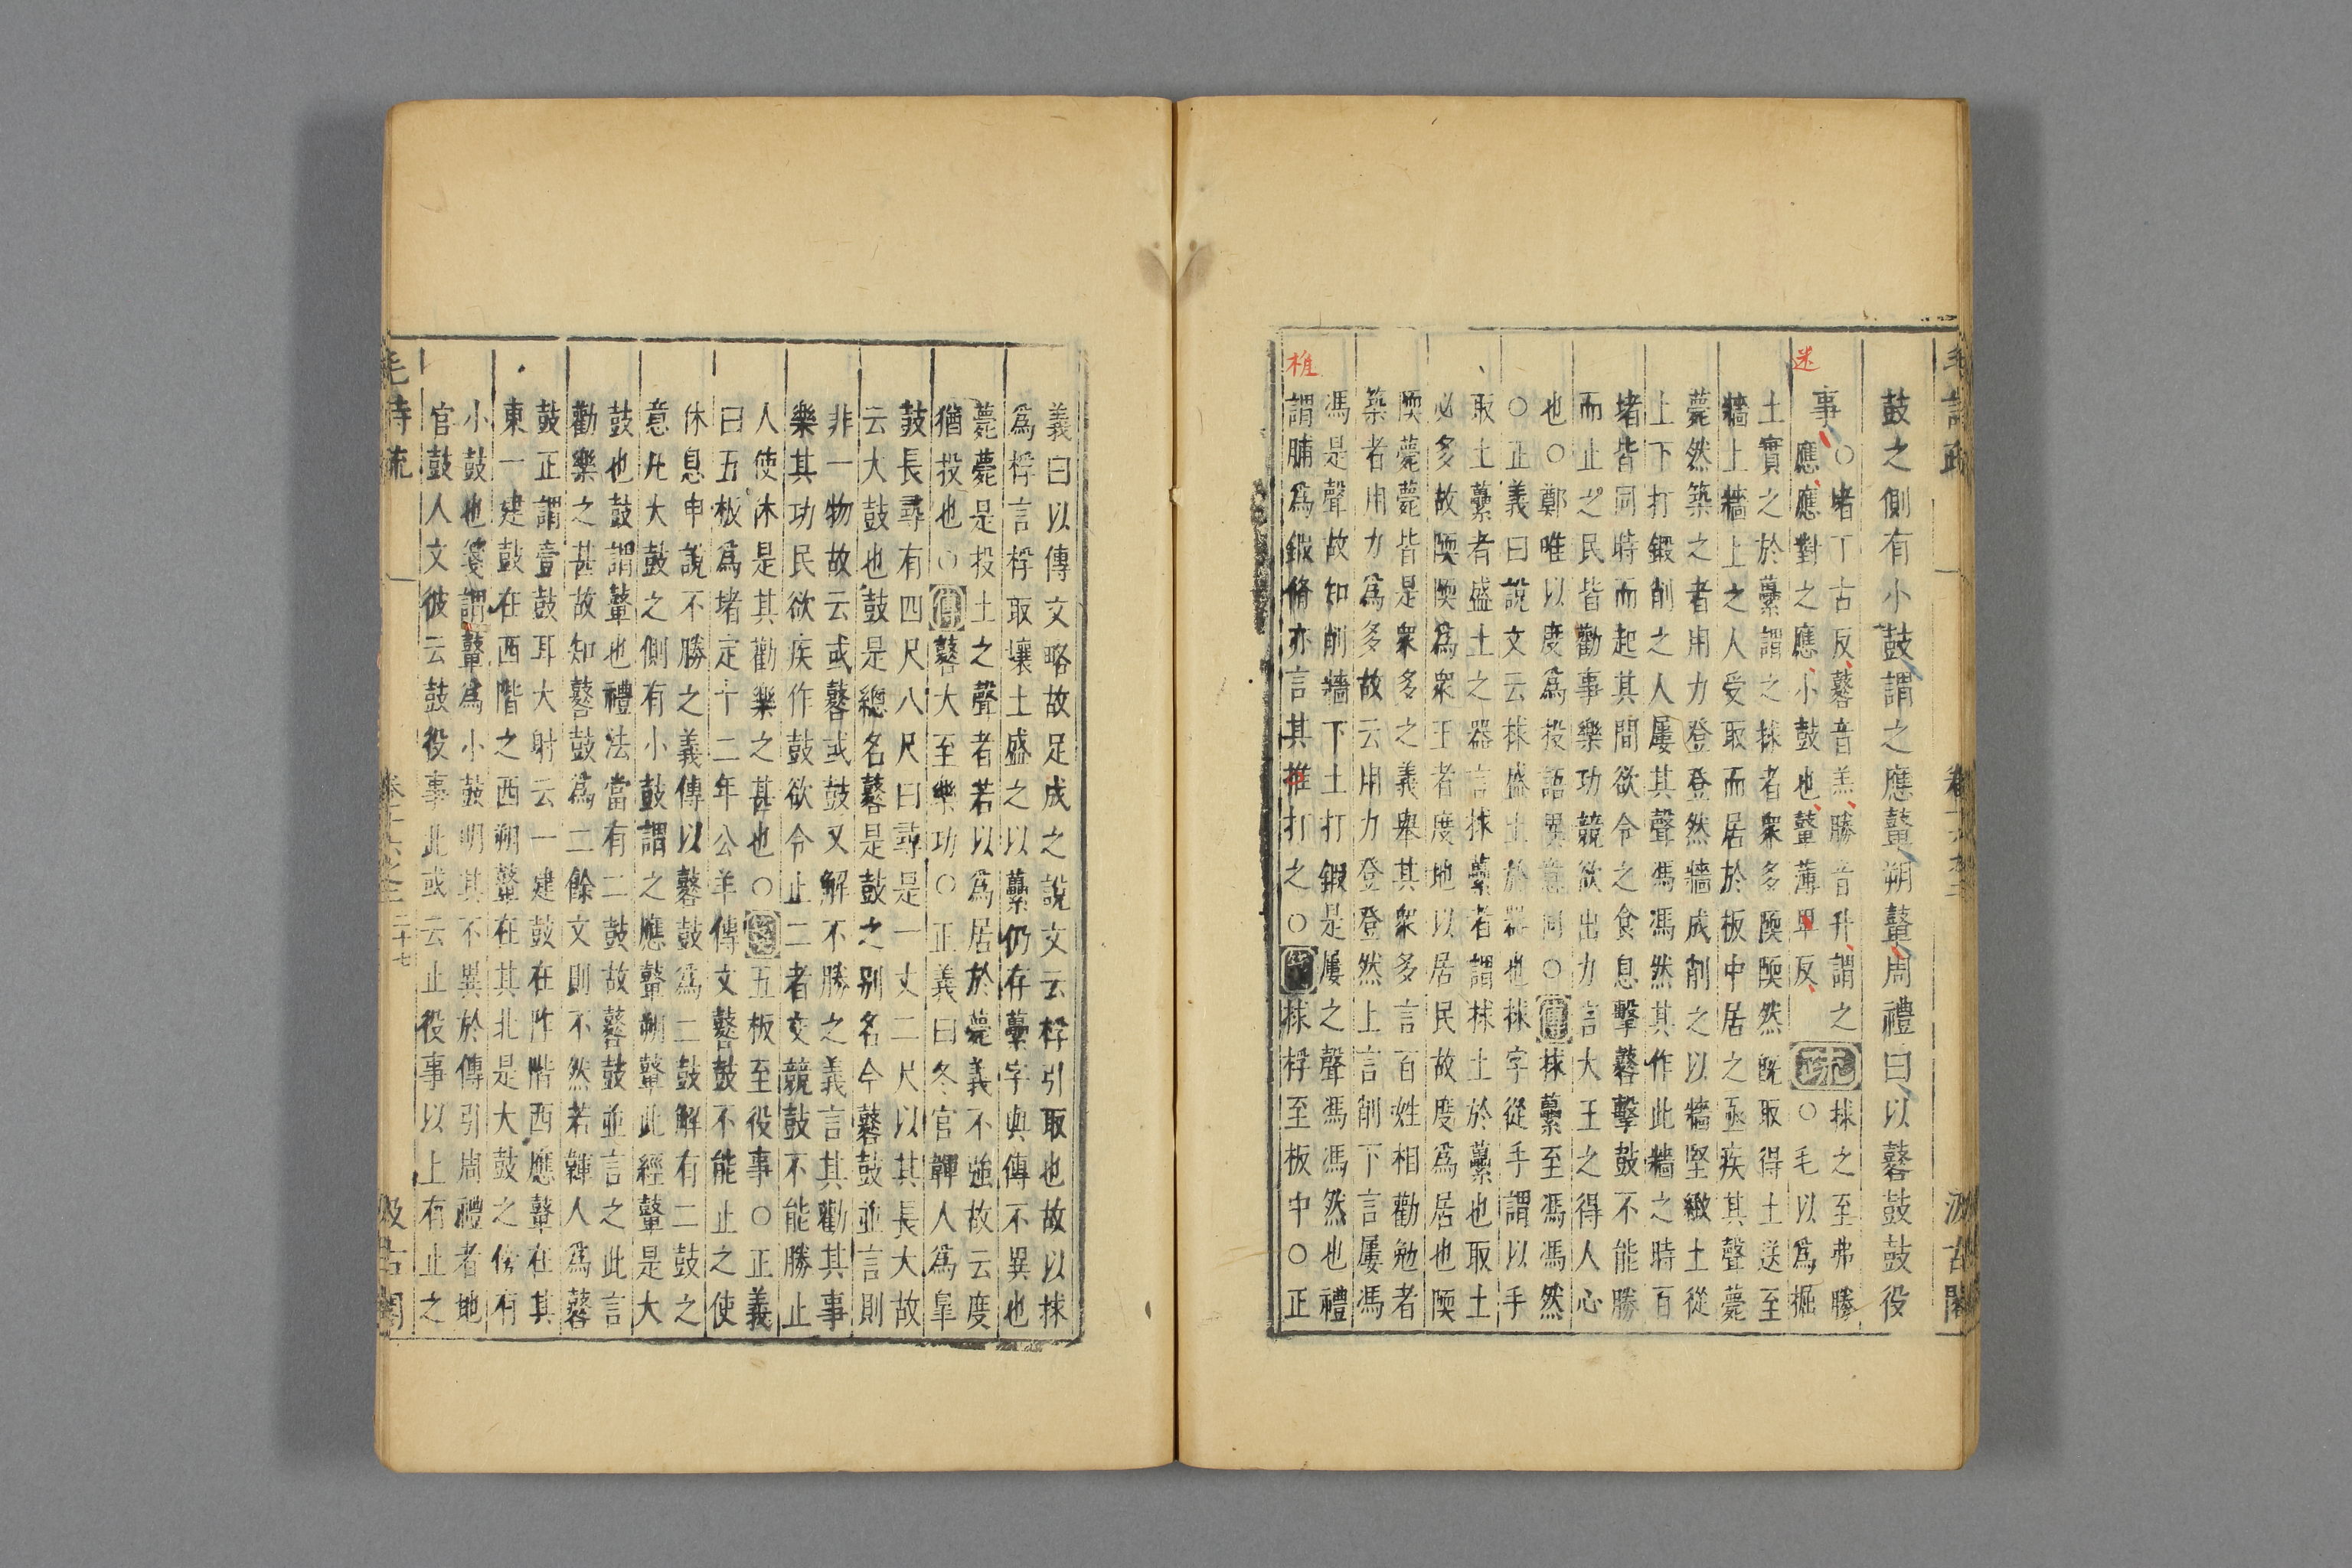 毛詩疏
卷十六之二
汲古閣
鼓之側有小鼓謂之應鼙朔鼙周禮曰以鼛鼓鼓役
事
○堵丁古反鼛音羔勝音升謂之
應應對之應小鼓也鼙薄卑反
迷
疏
捄之至弗勝
○毛以為掘
土實之於虆謂之捄者衆多陾陾然既取得土送至
牆上牆上之人受取而居於板中居之亟疾其聲薨
薨然築之者用力登登然牆成削之以牆堅緻土從
上下打鍛削之人屢其聲馮馮然其作此牆之時百
堵皆同時而起其間欲令之食息擊鼛擊鼓不能勝
而止之民皆勸事樂功競欲出力言大王之得人心
也○鄭唯以度為投語異意同○傳捄虆至馮馮然
○正義曰說文云捄盛土於器也捄字從手謂以手
取土虆者盛土之器言捄虆者謂捄土於虆也取土
必多故陾陾為衆王者度地以居民故度為居也陾
陾薨薨皆是衆多之義舉其衆多言百姓相勸勉者
築者用力為多故云用力登登然上言削下言屢馮
馮是聲故知削牆下土打鍛是屢之聲馮馮然也禮
謂脯為鍛脩亦言其推打之○箋捄桴至板中○正
椎
義曰以傳文略故足成之說文云桴引取也故以捄
為桴言桴取壤土盛之以虆仍存虆字與傳不異也
薨薨是投土之聲者若以為居於薨義不強故云度
猶投也○傳鼛大至樂功○正義曰冬官韗人為臯
鼓長尋有四尺八尺曰尋是一丈二尺以其長大故
云大鼓也鼓是總名鼛是鼓之別名今鼛鼓並言則
非一物故云或鼛或鼓又解不勝之義言其勸其事
樂其功民欲疾作鼓欲令止二者交競鼓不能勝止
人使休是其勸樂之甚也○箋五板至役事○正義
曰五板為堵定十二年公羊傳文鼛鼓不能止之使
休息申說不勝之義傳以鼛鼓為二鼓解有二鼓之
意凡大鼓之側有小鼓謂之應鼙朔鼙此經鼙是大
鼓也鼓謂鼙也禮法當有二鼓故鼛鼓並言之此言
勸樂之甚故知鼛鼓為二餘文則不然若韗人為鼛
鼓正謂壹鼓耳大射云一建鼓在阼階西應鼙在其
東一建鼓在西階之西朔鼙在其北是大鼓之傍有
小鼓也箋謂鼙為小鼓明其不異於傳引周禮者地
官鼓人文彼云鼓役事此或云止役事以上有止之
毛詩疏
卷十六之二
二十七
汲古閣